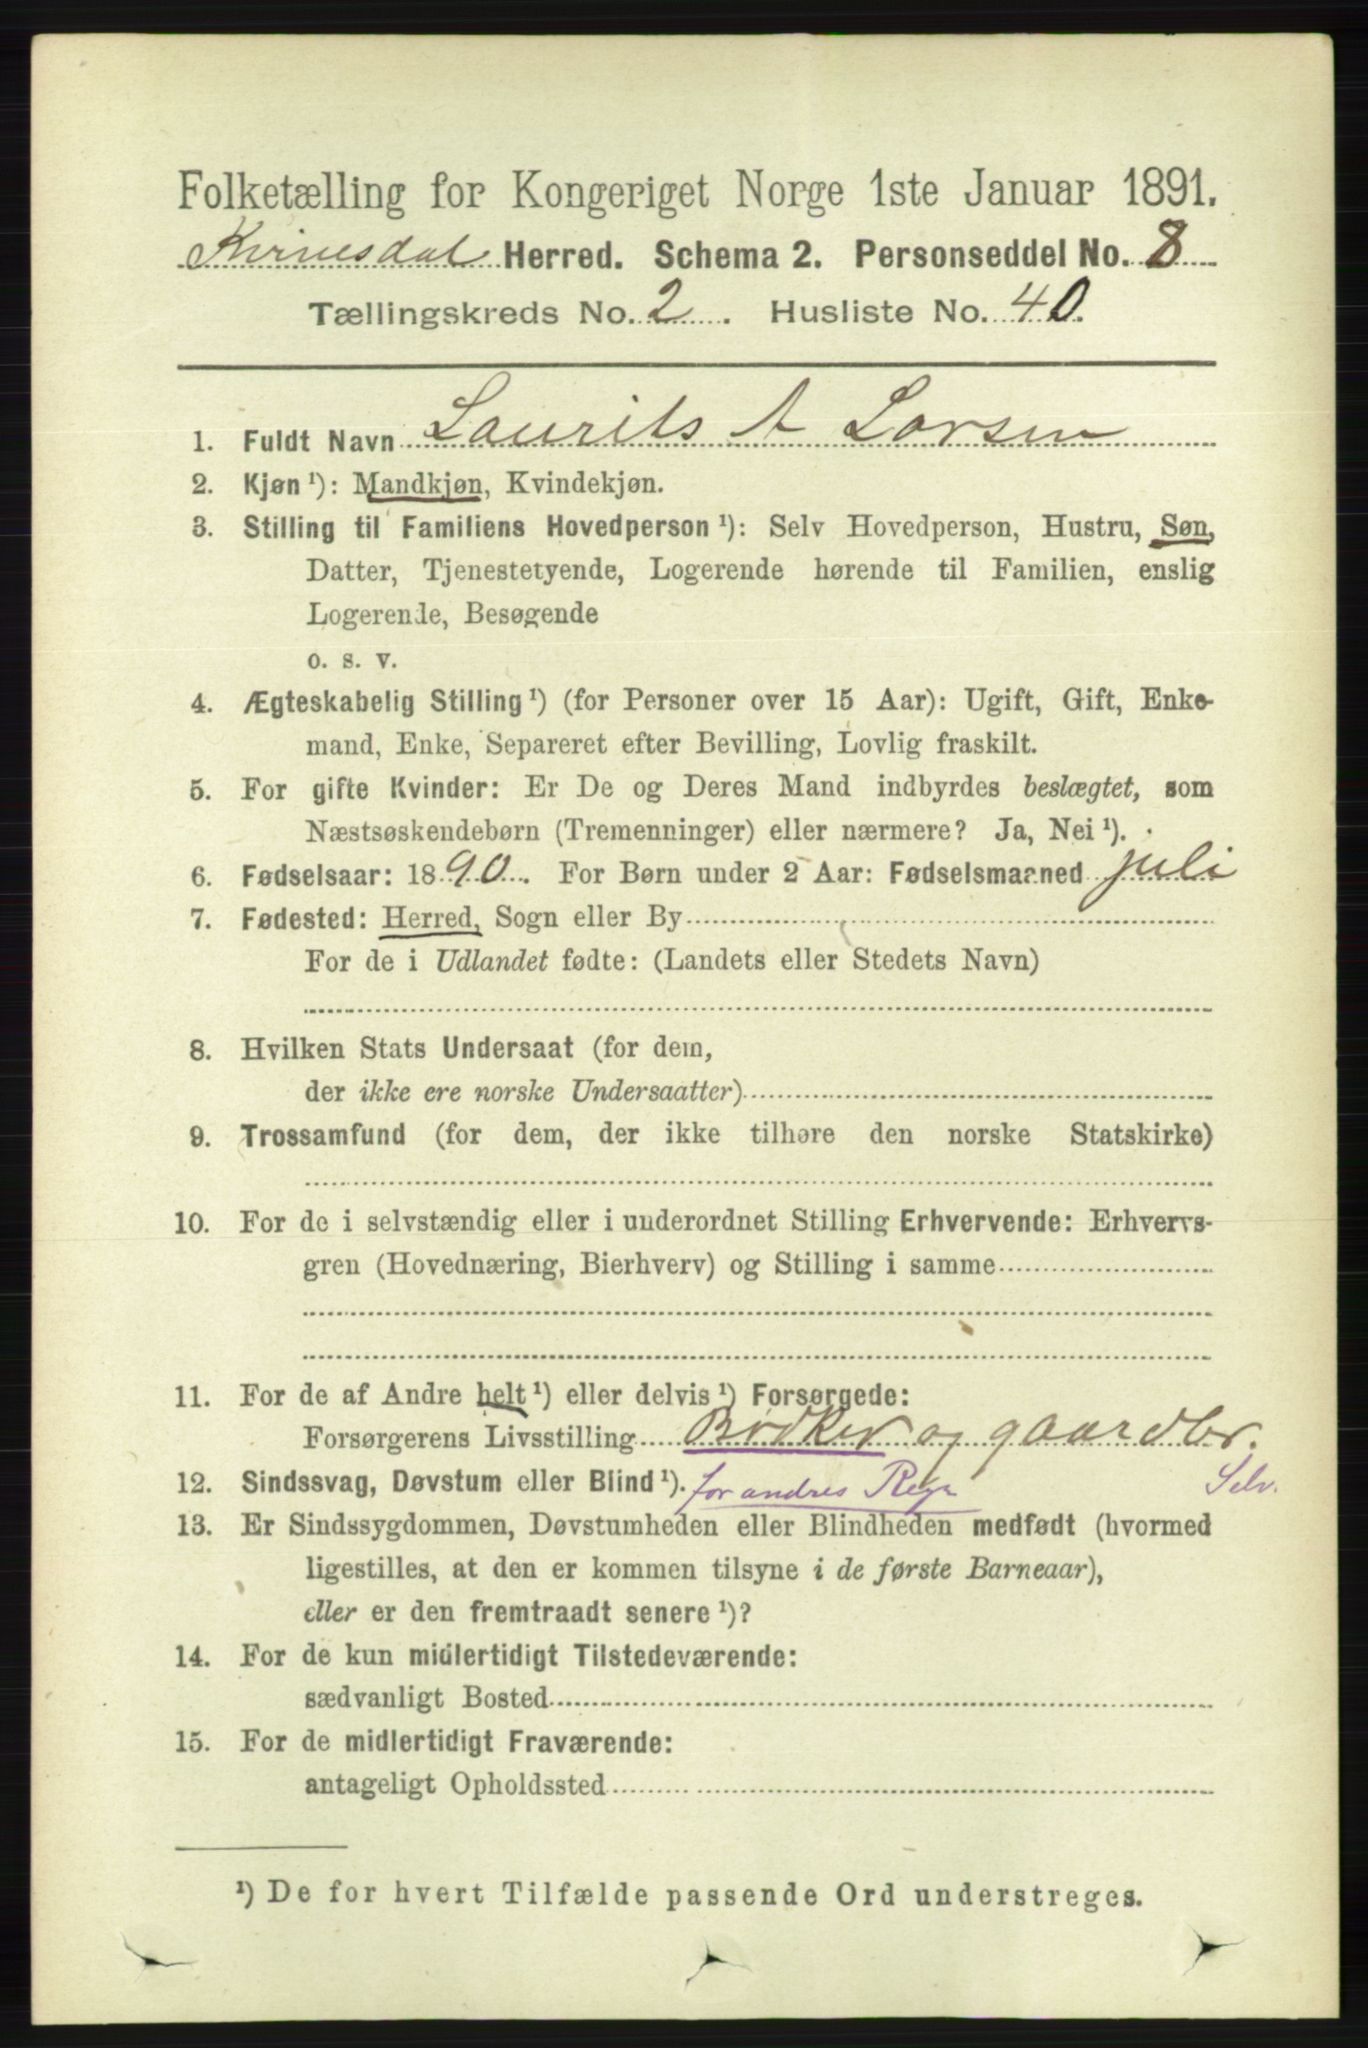 Folketælling for Kongeriget Norge 1ste Januar 1891.
Kvinesdal Herred. Schema 2. Personseddel No. 8
Tællingskreds No. 2. Husliste No. 40.
1. Fuldt Navn Laurits A Larsen
2. Kjøn ¹): Mandkjøn, Kvindekjøn.
3. Stilling til Familiens Hovedperson ¹): Selv Hovedperson, Hustru, Søn,
Datter, Tjenestetyende, Logerende hørende til Familien, enslig
Logerende, Besøgende
o. s. v.
4. Ægteskabelig Stilling ¹) (for Personer over 15 Aar): Ugift, Gift, Enke-
mand, Enke, Separeret efter Bevilling, Lovlig fraskilt.
5. For gifte Kvinder: Er De og Deres Mand indbyrdes beslægtet, som
Næstsøskendebørn (Tremenninger) eller nærmere? Ja, Nei ¹).
6. Fødselsaar: 1890. For Børn under 2 Aar: Fødselsmaaned juli
7. Fødested: Herred, Sogn eller By
For de i Udlandet fødte: (Landets eller Stedets Navn)
8. Hvilken Stats Undersaat (for dem,
der ikke ere norske Undersaatter)
9. Trossamfund (for dem, der ikke tilhøre den norske Statskirke)
10. For de i selvstændig eller i underordnet Stilling Erhvervende: Erhvervs-
gren (Hovednæring, Bierhverv) og Stilling i samme
11. For de af Andre helt ¹) eller delvis ¹) Forsørgede:
Forsørgerens Livsstilling Bødker og gaardbr.
12. Sindssvag, Døvstum eller Blind ¹). for andres Regn Selv.
13. Er Sindssygdommen, Døvstumheden eller Blindheden medfødt (hvormed
ligestilles, at den er kommen tilsyne i de første Barneaar),
eller er den fremtraadt senere ¹)?
14. For de kun midlertidigt Tilstedeværende:
sædvanligt Bosted
15. For de midlertidigt Fraværende:
antageligt Opholdssted
¹) De for hvert Tilfælde passende Ord understreges.